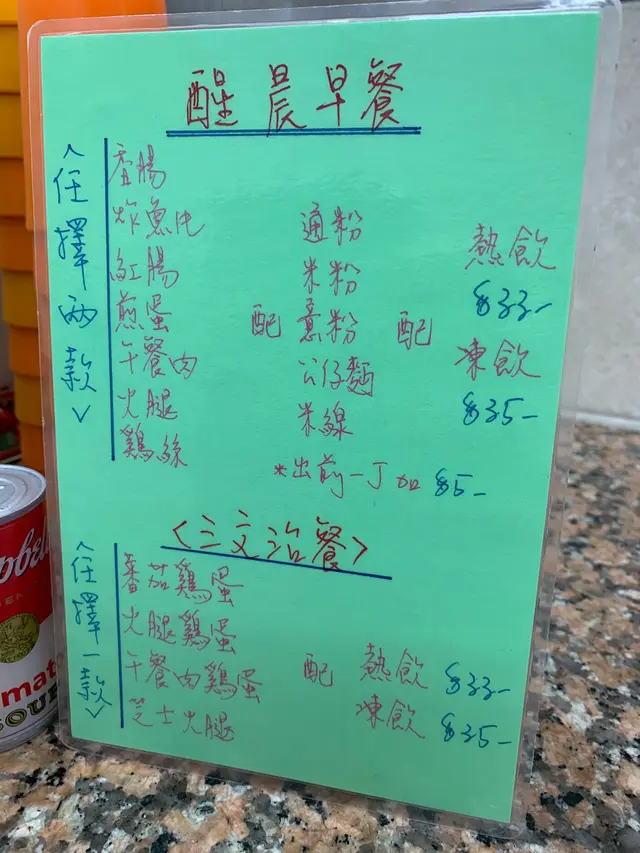 醒晨早餐
<任擇兩款>
香腸
炸魚片
紅腸
煎蛋
午餐肉
火腿
鷄絲
配
通粉
米粉
意粉
公仔麵
米線
配
熱飲
$33-
凍飲
$35-
*出前一丁加$5-
<三文治餐>
<任擇一款>
蕃茄鷄蛋
火腿鷄蛋
午餐肉鷄蛋
芝士火腿
配
熱飲 $33-
凍飲 $35-